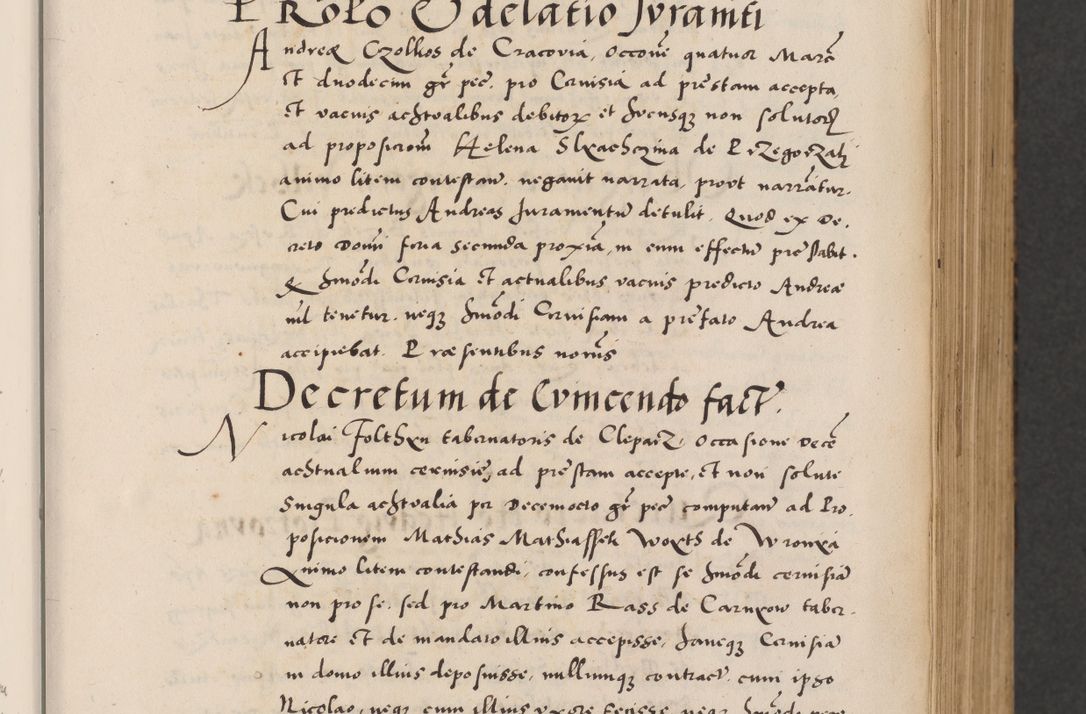 P Rolo O delatio Juramti
Andreæ Czolkos de Cracovia, occone quatuor Marc
et duodecim gr pec. pro Cervisia ad prestam accepta
et vacuis achtualibus debitor et hucusq non solutor
ad proposicion Helena Slxachczina de Przegorzali
animo litem contestan. negavit narrata, prout narrantur.
Cui predictus Andreas Juramentu detulit. Quod ex De.
creto Domi feria secunda proxia, in eum effectu prestabit.
Q hmodi Cervisia et actualibus vacuis predicto Andreæ
nil tenetur. neq hmodi Cervisiam a prefato Andrea
accipiebat. Præsentibus notris
Decretum de Evincendo fact.
Nicolai Folthxn tabernatoris de Clepar, Occasione Dece
achtualium cervisie, ad prestam accepte, et non solute
Singula achtualia per Decemocto gr pec computan ad Pro.
posicionem Mathias Mathiasseck Woxth de Wronxa
Animo litem contestandi, confessus est se hmodi cervisia
non pro se, sed pro Martino Rass de Carnxow taber.
natore et de mandato illius accepisse, hancq Cervisia
in domo illius deposuisse, nullumq contract cum ipso
Nicolao, neq cum illius uxore fecisse neq hmodi